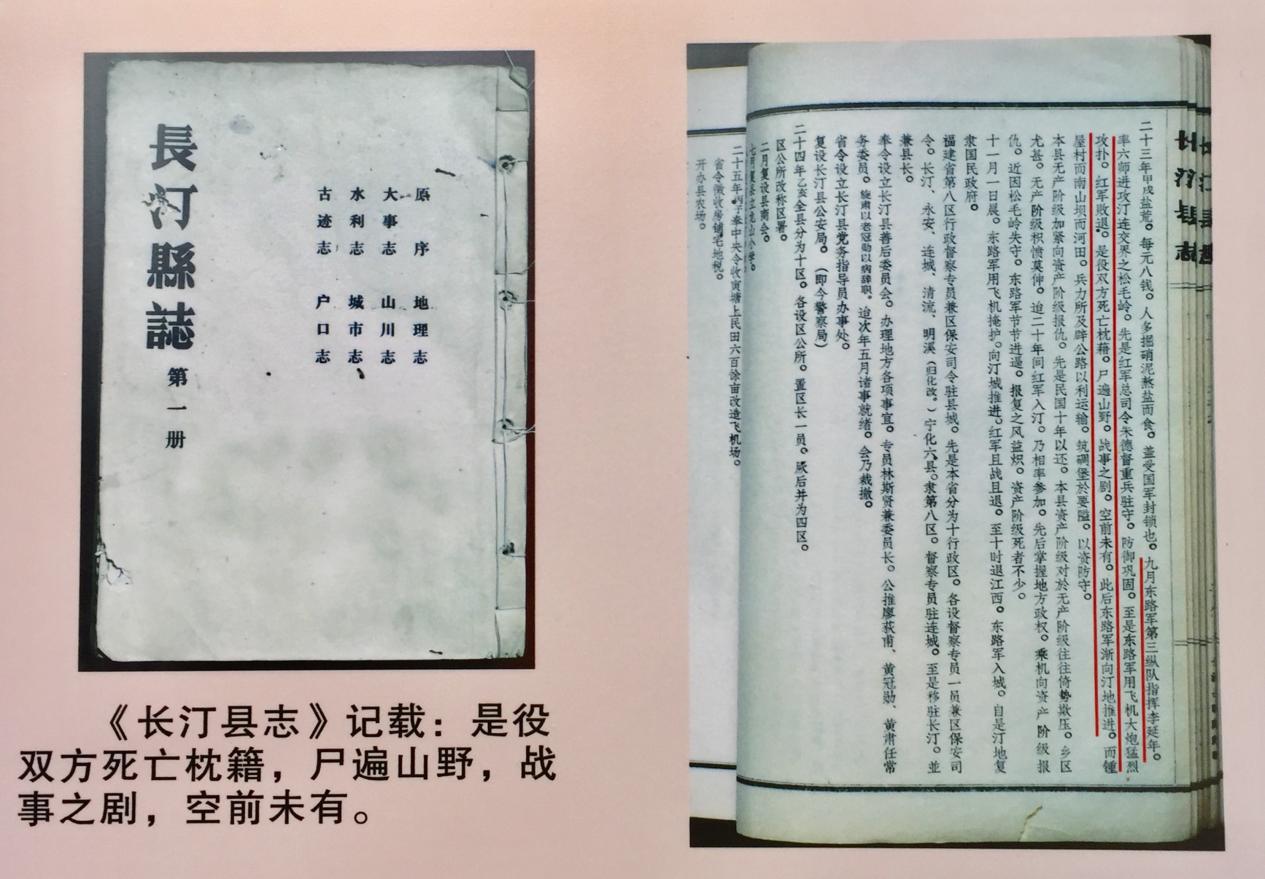 長汀縣誌
第一册
原序 地理志
大事志 山川志
水利志 城市志
古迹志 户口志
《长汀县志》记载：是役
双方死亡枕籍，尸遍山野，战
事之剧，空前未有。
二十三年甲戌盐荒。每元八钱。人多掘硝泥熬盐而食。盖受国军封锁也。九月东路军第三纵队指挥李延年。
率六师进攻汀连交界之松毛岭。先是红军总司令朱德督重兵驻守。防御巩固。至是东路军用飞机大炮猛烈
攻扑。红军败退。是役双方死亡枕籍。尸遍山野。战事之剧。空前未有。此后东路军渐向汀地推进。而钟
屋村而南山坝而河田。兵力所及辟公路以利运输。筑碉堡於要隘。以资防守。
本县无产阶级加紧向资产阶级报仇。先是民国十年以还。本县资产阶级对於无产阶级往往倚势欺压。乡区
尤甚。无产阶级积愤莫伸。迨二十年间红军入汀。乃相率参加。先后掌握地方政权。乘机向资产阶级报
仇。近因松毛岭失守。东路军节节进逼。报复之风益炽。资产阶级死者不少。
十一月一日晨。东路军用飞机掩护。向汀城推进。红军且战且退。至十时退江西。东路军入城。自是汀地复
隶国民政府。
福建省第八区行政督察专员兼区保安司令驻县城。先是本省分为十行政区。各设督察专员一员兼区保安司
令。长汀、永安、连城、清流、明溪（归化改。）宁化六县。隶第八区。督察专员驻连城。至是移驻长汀。並
兼县长。
奉令设立长汀县善后委员会。办理地方各项事宜。专员林斯贤兼委员长。公推廖荻甫、黄冠勋、黄肃任常
务委员。旋肃以老冠勋以病辞职。迨次年五月诸事就绪。会乃裁撤。
省令设立长汀县党务指导员办事处。
复设长汀县公安局。（即今警察局）
二十四年乙亥全县分为十区。各设区公所。置区长一员。厥后并为四区。
区公所改称区署。
二月复设县商会。
二十五年丙子奉中央令收寅塘上民田六百馀亩改造飞机场。
省令征收房铺宅地税。
开办县农场。
长汀县志